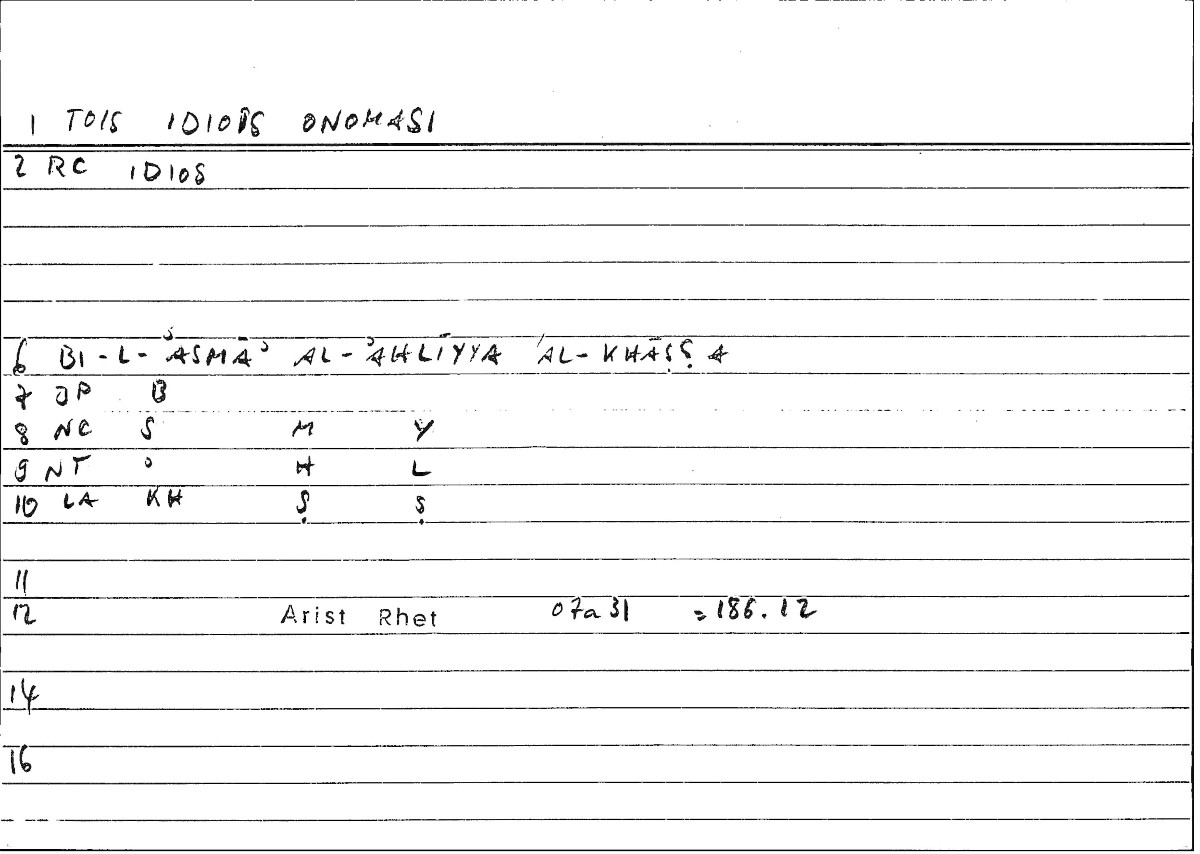 1 TOIS IDIOIS ONOMASI
2 RC IDIOS
6 BI-L-ʾASMĀʾ AL-ʾAHLĪYYA ʾAL-KHĀṢṢA
7 JP B
8 NC S M Y
9 NT ʾ H L
10 LA KH Ṣ Ṣ
11
12 Arist Rhet 07a31 =186.12
14
16